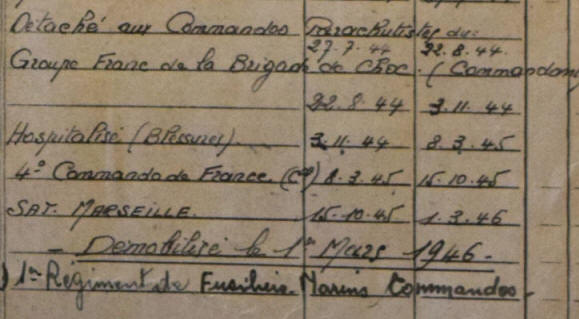 Detaché aux Commandos Parachutistes du:
27.7.44 22.8.44.
Groupe Franc de la Brigade de Choc. (Commandom
22.8.44 3.11.44
Hospitalisé (Blessures). 3.11.44 8.3.45
4° Commando de France. 8.3.45 15.10.45
SAT. MARSEILLE. 15.10.45 1.3.46
- Demobilisé le 1er Mars 1946 -
) 1er Régiment de Fusiliers. Marins Commandos.